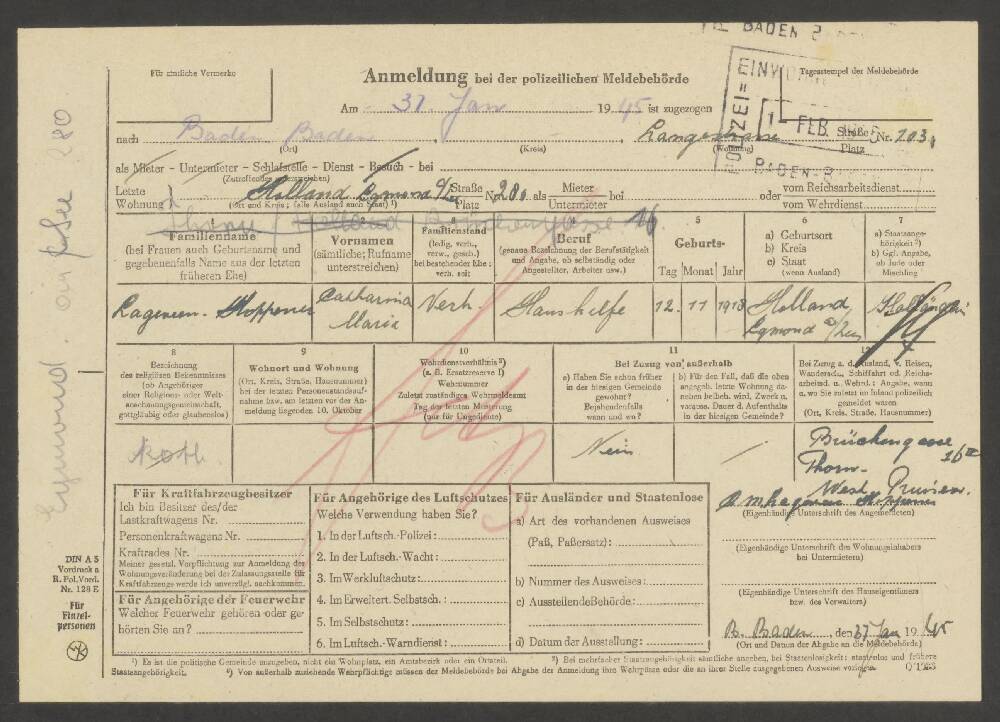 BADEN
Für amtliche Vermerke
Anmeldung bei der polizeilichen Meldebehörde
Tagesstempel der Meldebehörde
POLIZEI=
EINWOHNER
1- FEB.
BADEN-B
Am 31 Jan 1945 ist zugezogen
nach Baden Baden, Langestrasse Straße Platz Nr. 103
(Ort) (Kreis) (Wohnung)
als Mieter - Untermieter - Schlafstelle - Dienst - Besuch - bei
(Zutreffendes unterstreichen)
Letzte Wohnung Holland Egmond a/Zee Straße Platz Nr. 280 als Mieter Untermieter bei oder vom Reichsarbeitsdienst
(Ort und Kreis; falls Ausland auch Staat) vom Wehrdienst
Thorn / Holland Brückengasse 16
1 2 3 4 5 6 7
Familienname
(bei Frauen auch Geburtsname und gegebenenfalls Name aus der letzten früheren Ehe)
Vornamen
(sämtliche; Rufname unterstreichen)
Familienstand
(ledig, verh., verw., gesch.)
bei bestehender Ehe: verh. seit:
Beruf
(genaue Bezeichnung der Berufstätigkeit und Angabe, ob selbständig oder Angestellter, Arbeiter usw.)
Geburts-
Tag Monat Jahr
a) Geburtsort
b) Kreis
c) Staat
(wenn Ausland)
a) Staatsangehörigkeit ²)
b) Ggf. Angabe, ob Jude oder Mischling
Hoppener Catharina Maria Verh. Haushilfe 12. 11 1918 Holland Egmond a/Zee
8 9 10 11 12
Bezeichnung des religiösen Bekenntnisses
(ob Angehöriger einer Religions- oder Weltanschauungsgemeinschaft, gottgläubig oder glaubenslos)
Wohnort und Wohnung
(Ort, Kreis, Straße, Hausnummer)
bei der letzten Personenstandsaufnahme bzw. am letzten vor der Anmeldung liegenden 10. Oktober
Wehrdienstverhältnis ³)
(z. B. Ersatzreserve I)
Wehrnummer
Zuletzt zuständiges Wehrmeldeamt
Tag der letzten Musterung
(nur für Ungediente)
Bei Zuzug von außerhalb
a) Haben Sie schon früher in der hiesigen Gemeinde gewohnt?
Bejahendenfalls wann und wo?
b) Für den Fall, daß die oben angegeb. letzte Wohnung daneben beibeh. wird, Zweck u. vorauss. Dauer d. Aufenthalts in der hiesigen Gemeinde?
Bei Zuzug a. d. Ausland, v. Reisen, Wandersch., Schiffahrt od. Reichsarbeitsd. u. Wehrd.: Angabe, wann u. wo Sie zuletzt im Inland polizeilich gemeldet waren
(Ort, Kreis, Straße, Hausnummer)
Koth. Nein / Brückengasse 16 III
Thorn-
West Preusen.
(Eigenhändige Unterschrift des Angemeldeten)
(Eigenhändige Unterschrift des Wohnungsinhabers bei Untermietern)
(Eigenhändige Unterschrift des Hauseigentümers bzw. des Verwalters)
B. Baden, den 31 Jan 1945
(Ort und Datum der Abgabe an die Meldebehörde)
Für Kraftfahrzeugbesitzer
Ich bin Besitzer des/der
Lastkraftwagens Nr.
Personenkraftwagens Nr.
Kraftrades Nr.
Meiner gesetzl. Verpflichtung zur Anmeldung der Wohnungsveränderung bei der Zulassungsstelle für Kraftfahrzeuge werde ich unverzügl. nachkommen.
Für Angehörige der Feuerwehr
Welcher Feuerwehr gehören oder gehörten Sie an?
Für Angehörige des Luftschutzes
Welche Verwendung haben Sie?
1. In der Luftsch.-Polizei:
2. In der Luftsch.-Wacht:
3. Im Werkluftschutz:
4. Im Erweitert. Selbstsch.:
5. Im Selbstschutz:
6. Im Luftsch.-Warndienst:
Für Ausländer und Staatenlose
a) Art des vorhandenen Ausweises
(Paß, Paßersatz):
b) Nummer des Ausweises:
c) Ausstellende Behörde:
d) Datum der Ausstellung:
¹) Es ist die politische Gemeinde anzugeben, nicht ein Wohnplatz, ein Amtsbezirk oder ein Ortsteil. ²) Bei mehrfacher Staatsangehörigkeit sämtliche angeben, bei Staatenlosigkeit: staatenlos und frühere Staatsangehörigkeit. ³) Von außerhalb zuziehende Wehrpflichtige müssen der Meldebehörde bei Abgabe der Anmeldung ihre Wehrpässe oder die an ihrer Stelle ausgegebenen Ausweise vorlegen
DIN A 5
Vordruck a
R. Pol. Vord.
Nr. 128 E
Für Einzelpersonen
Egmond. 280